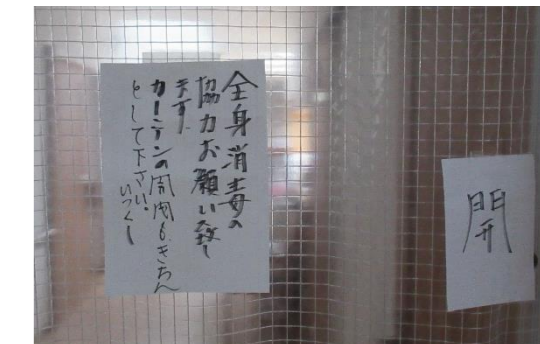 全身消毒の
協力お願い致し
ます。
カーテンの開閉もきちん
として下さい。
いつくし
開